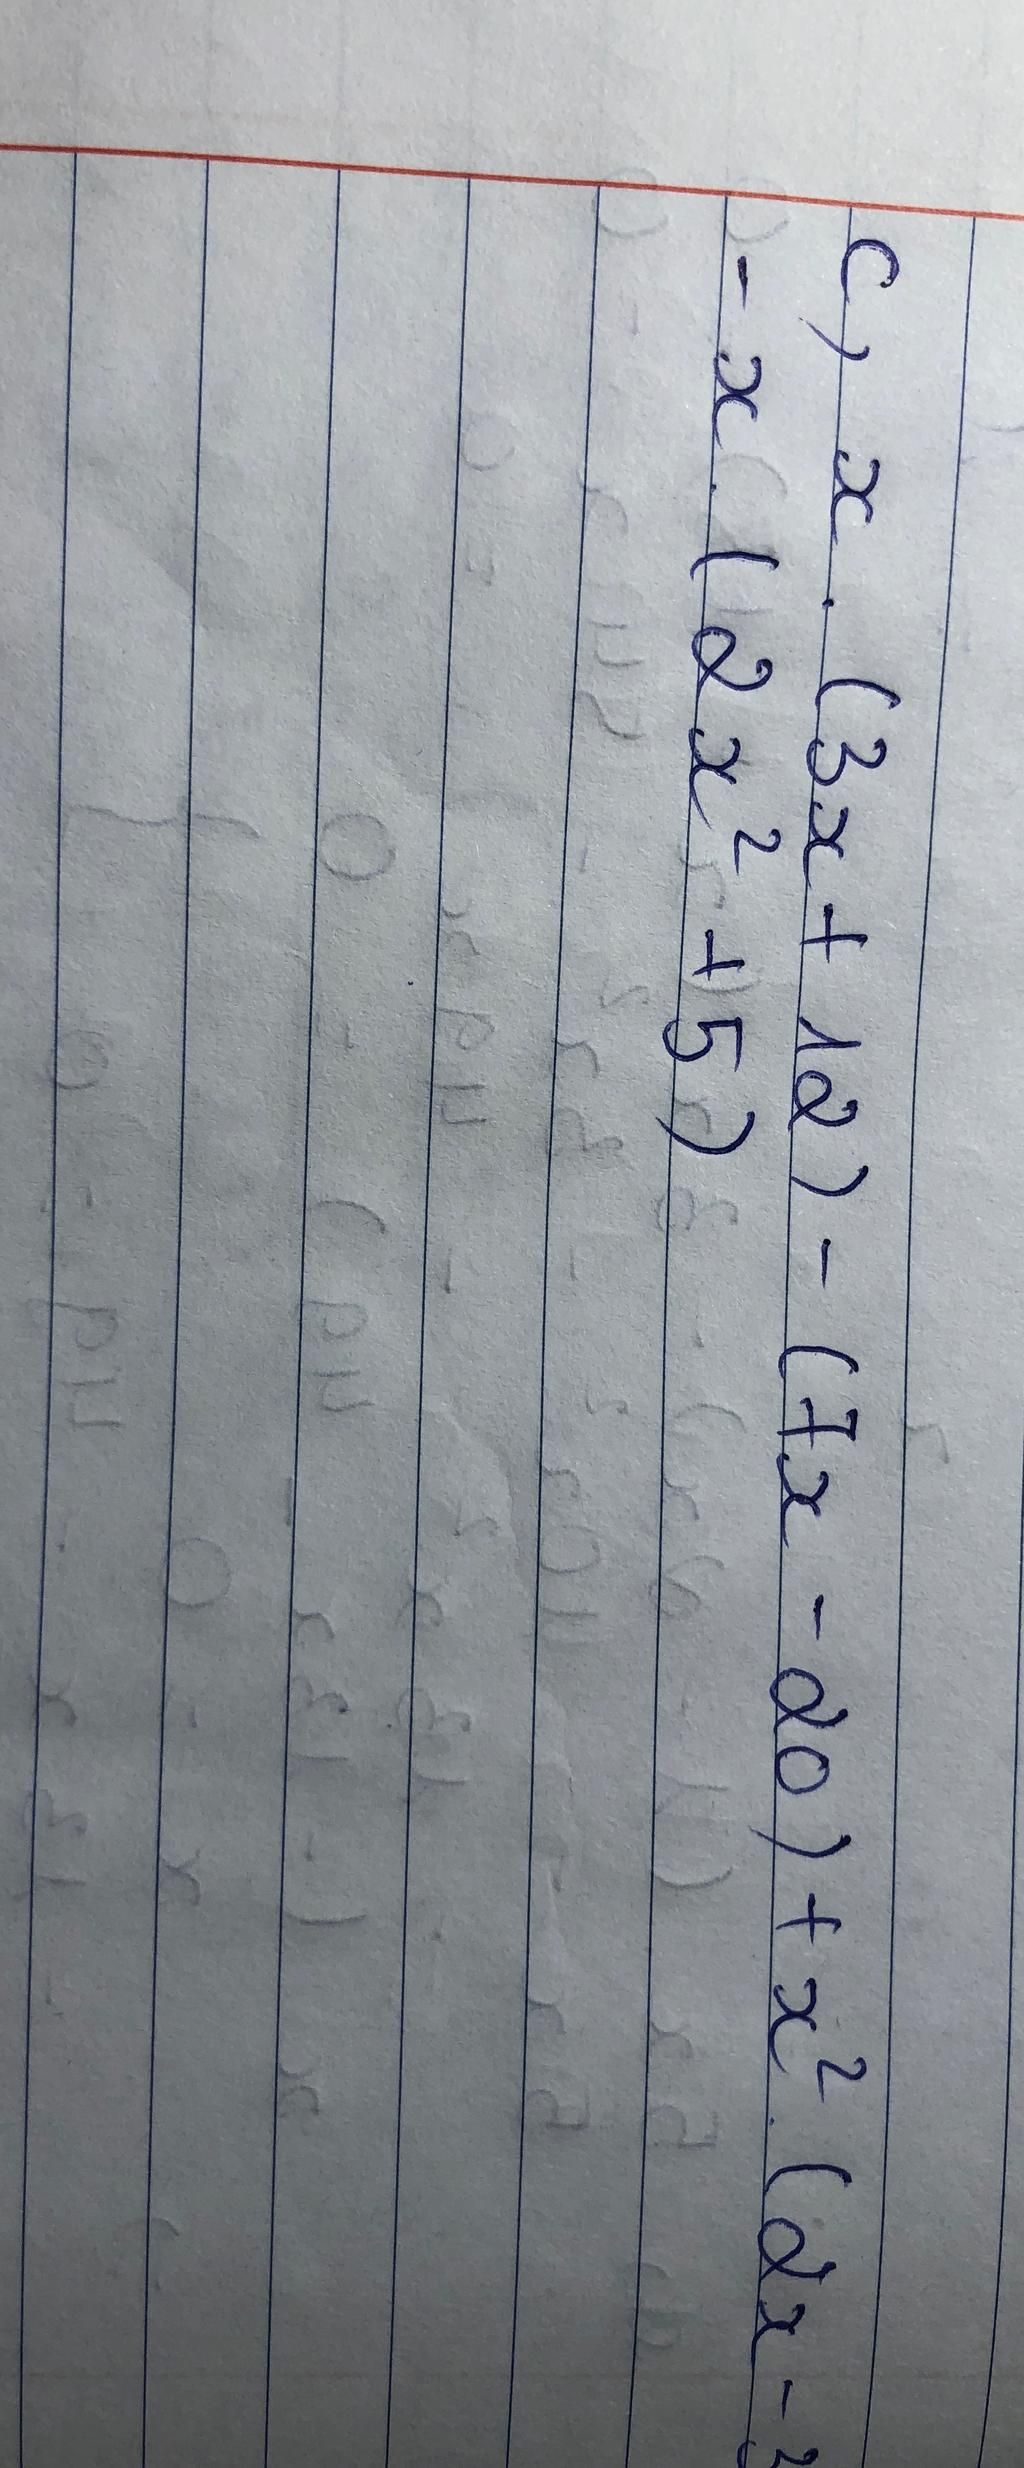 c, x . (3x + 12) - (7x - 20) + x² . (2x - 3
- x . (2x² + 5)